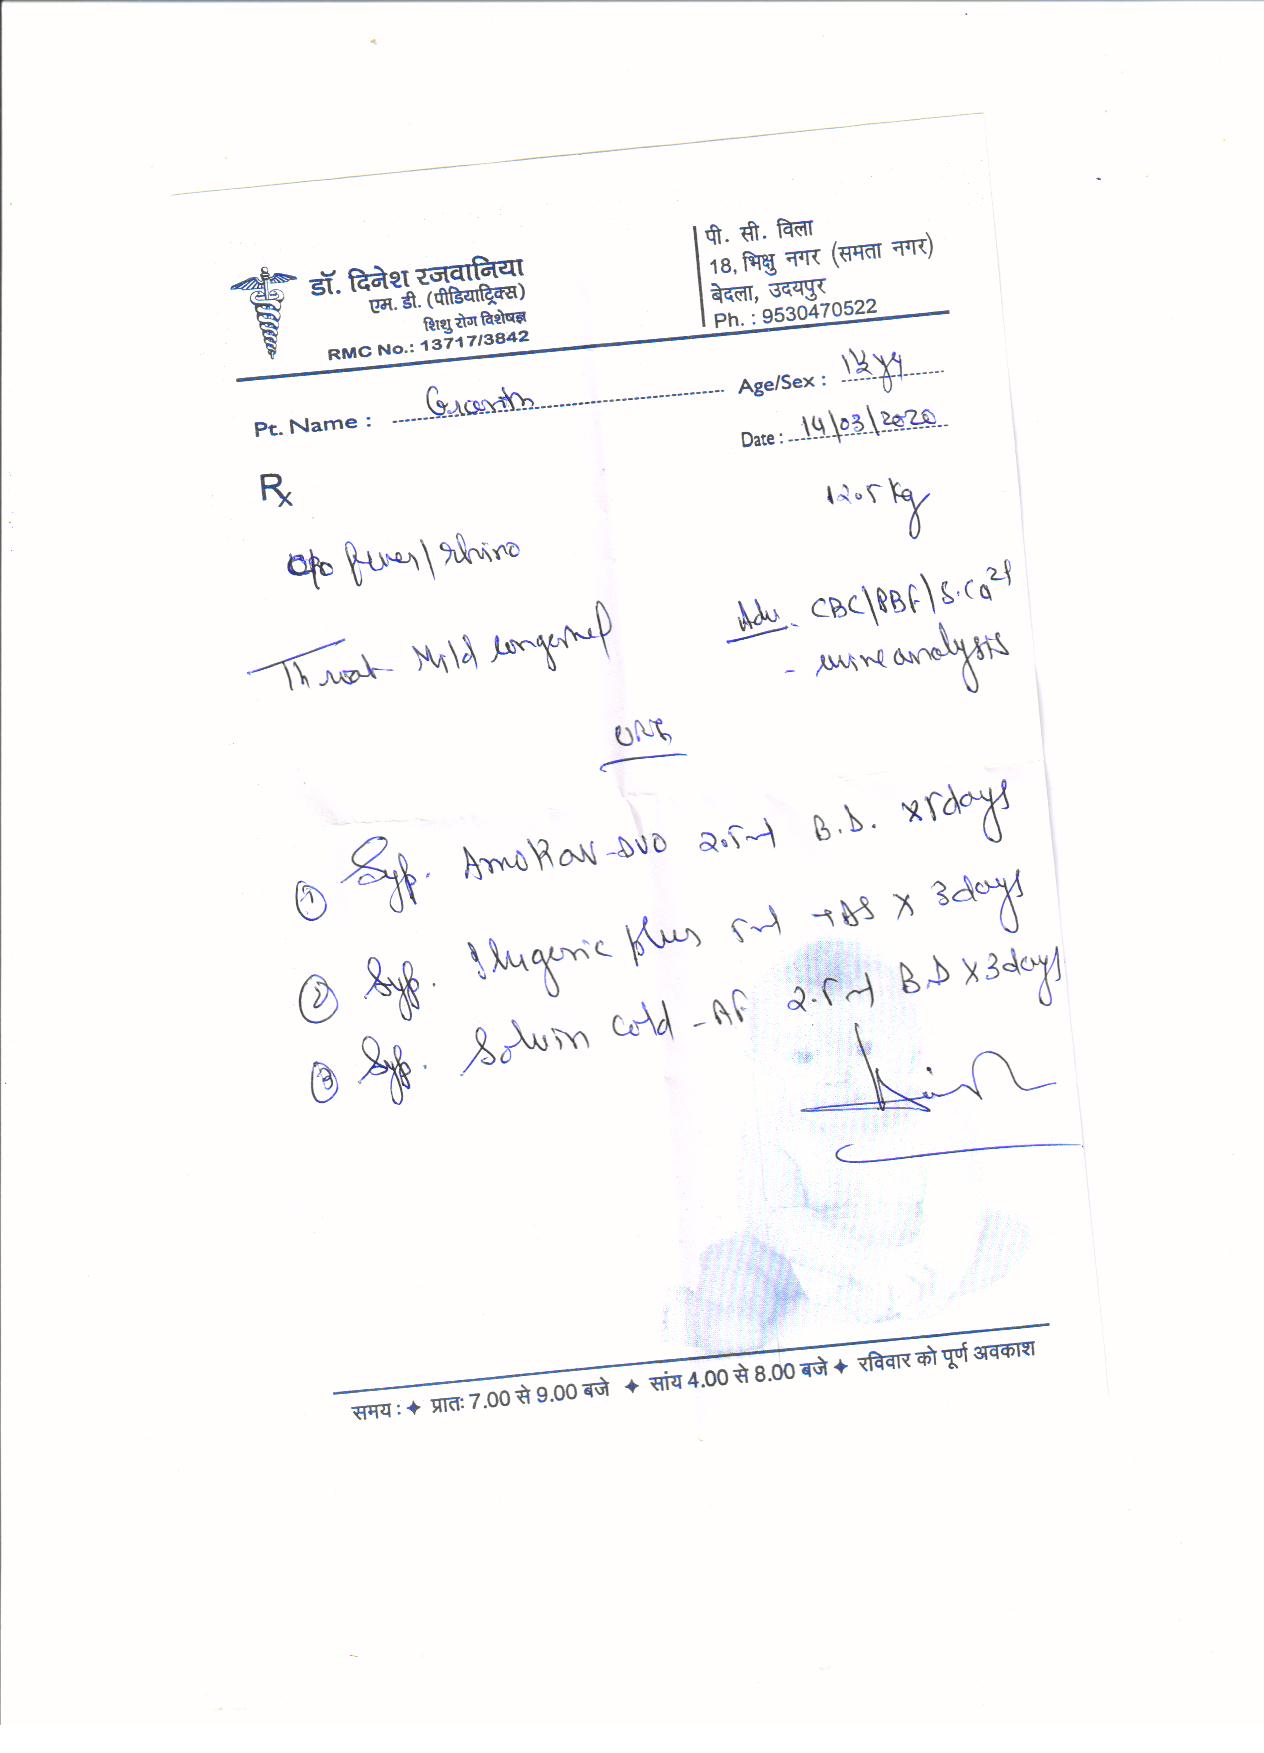 डॉ. दिनेश रजवानिया
एम. डी. (पीडियाट्रिक्स)
शिशु रोग विशेषज्ञ
RMC No.: 13717/3842
पी. सी. विला
18, भिक्षु नगर (समता नगर)
बेदला, उदयपुर
Ph. : 9530470522
Pt. Name :
Age/Sex :
Date : 14/03/2020
Rx
12.5 kg
c/o fever/rhino
Throat Mild congested
Adv. CBC/PBF/S.Ca2+
- urine analysis
① Syp. Amokav-DUO 2.5ml B.D. x 5 days
② Syp. Plus 5ml x 3 days
③ Syp. Solvin Cold-AF 2.5ml B.D x 3 days
समय : ✦ प्रातः 7.00 से 9.00 बजे ✦ सांय 4.00 से 8.00 बजे ✦ रविवार को पूर्ण अवकाश